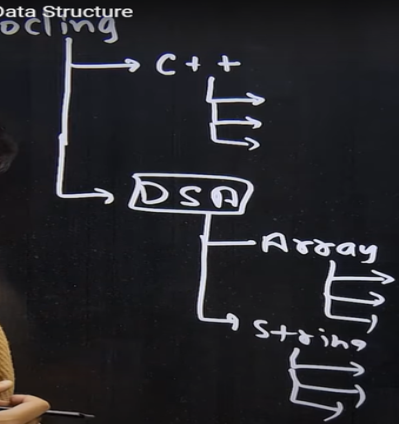 Data Structure
ocling
C++
DSA
Array
String